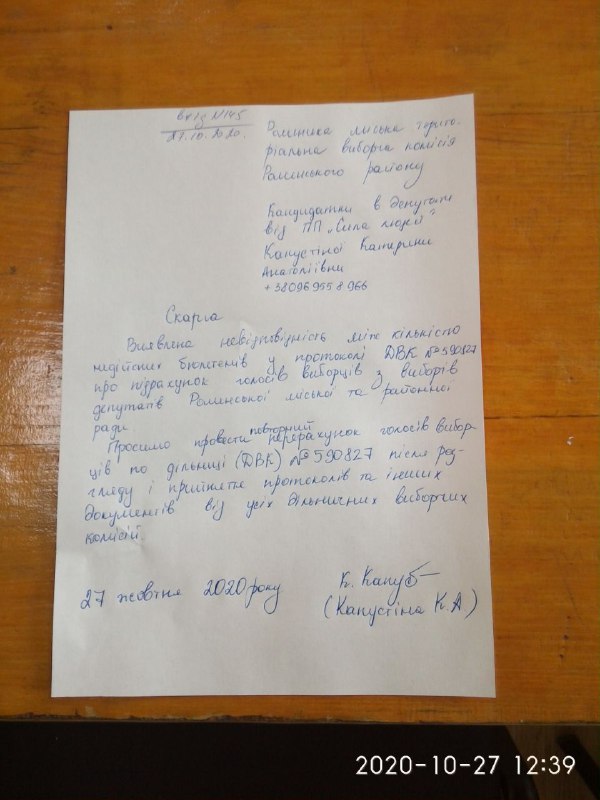 вхід №145
27.10.2020.
Роменська міська терито-
ріальна виборча комісія
Роменського району
Кандидатки в депутати
від ПП „Сила людей"
Капустіної Катерини
Анатоліївни
+380969558966
Скарга
Виявлена невідповідність між кількістю
недійсних бюлетенів у протоколі ДВК №590827
про підрахунок голосів виборців з виборів
депутатів Роменської міської та районної
ради.
повторний
Просимо провести перерахунок голосів вибор-
ців по дільниці (ДВК) №590827 після роз-
гляду і прийняття протоколів та інших
документів від усіх дільничних виборчих
комісій.
27 жовтня 2020 року
К. Капу
(Капустіна К.А)
2020-10-27 12:39